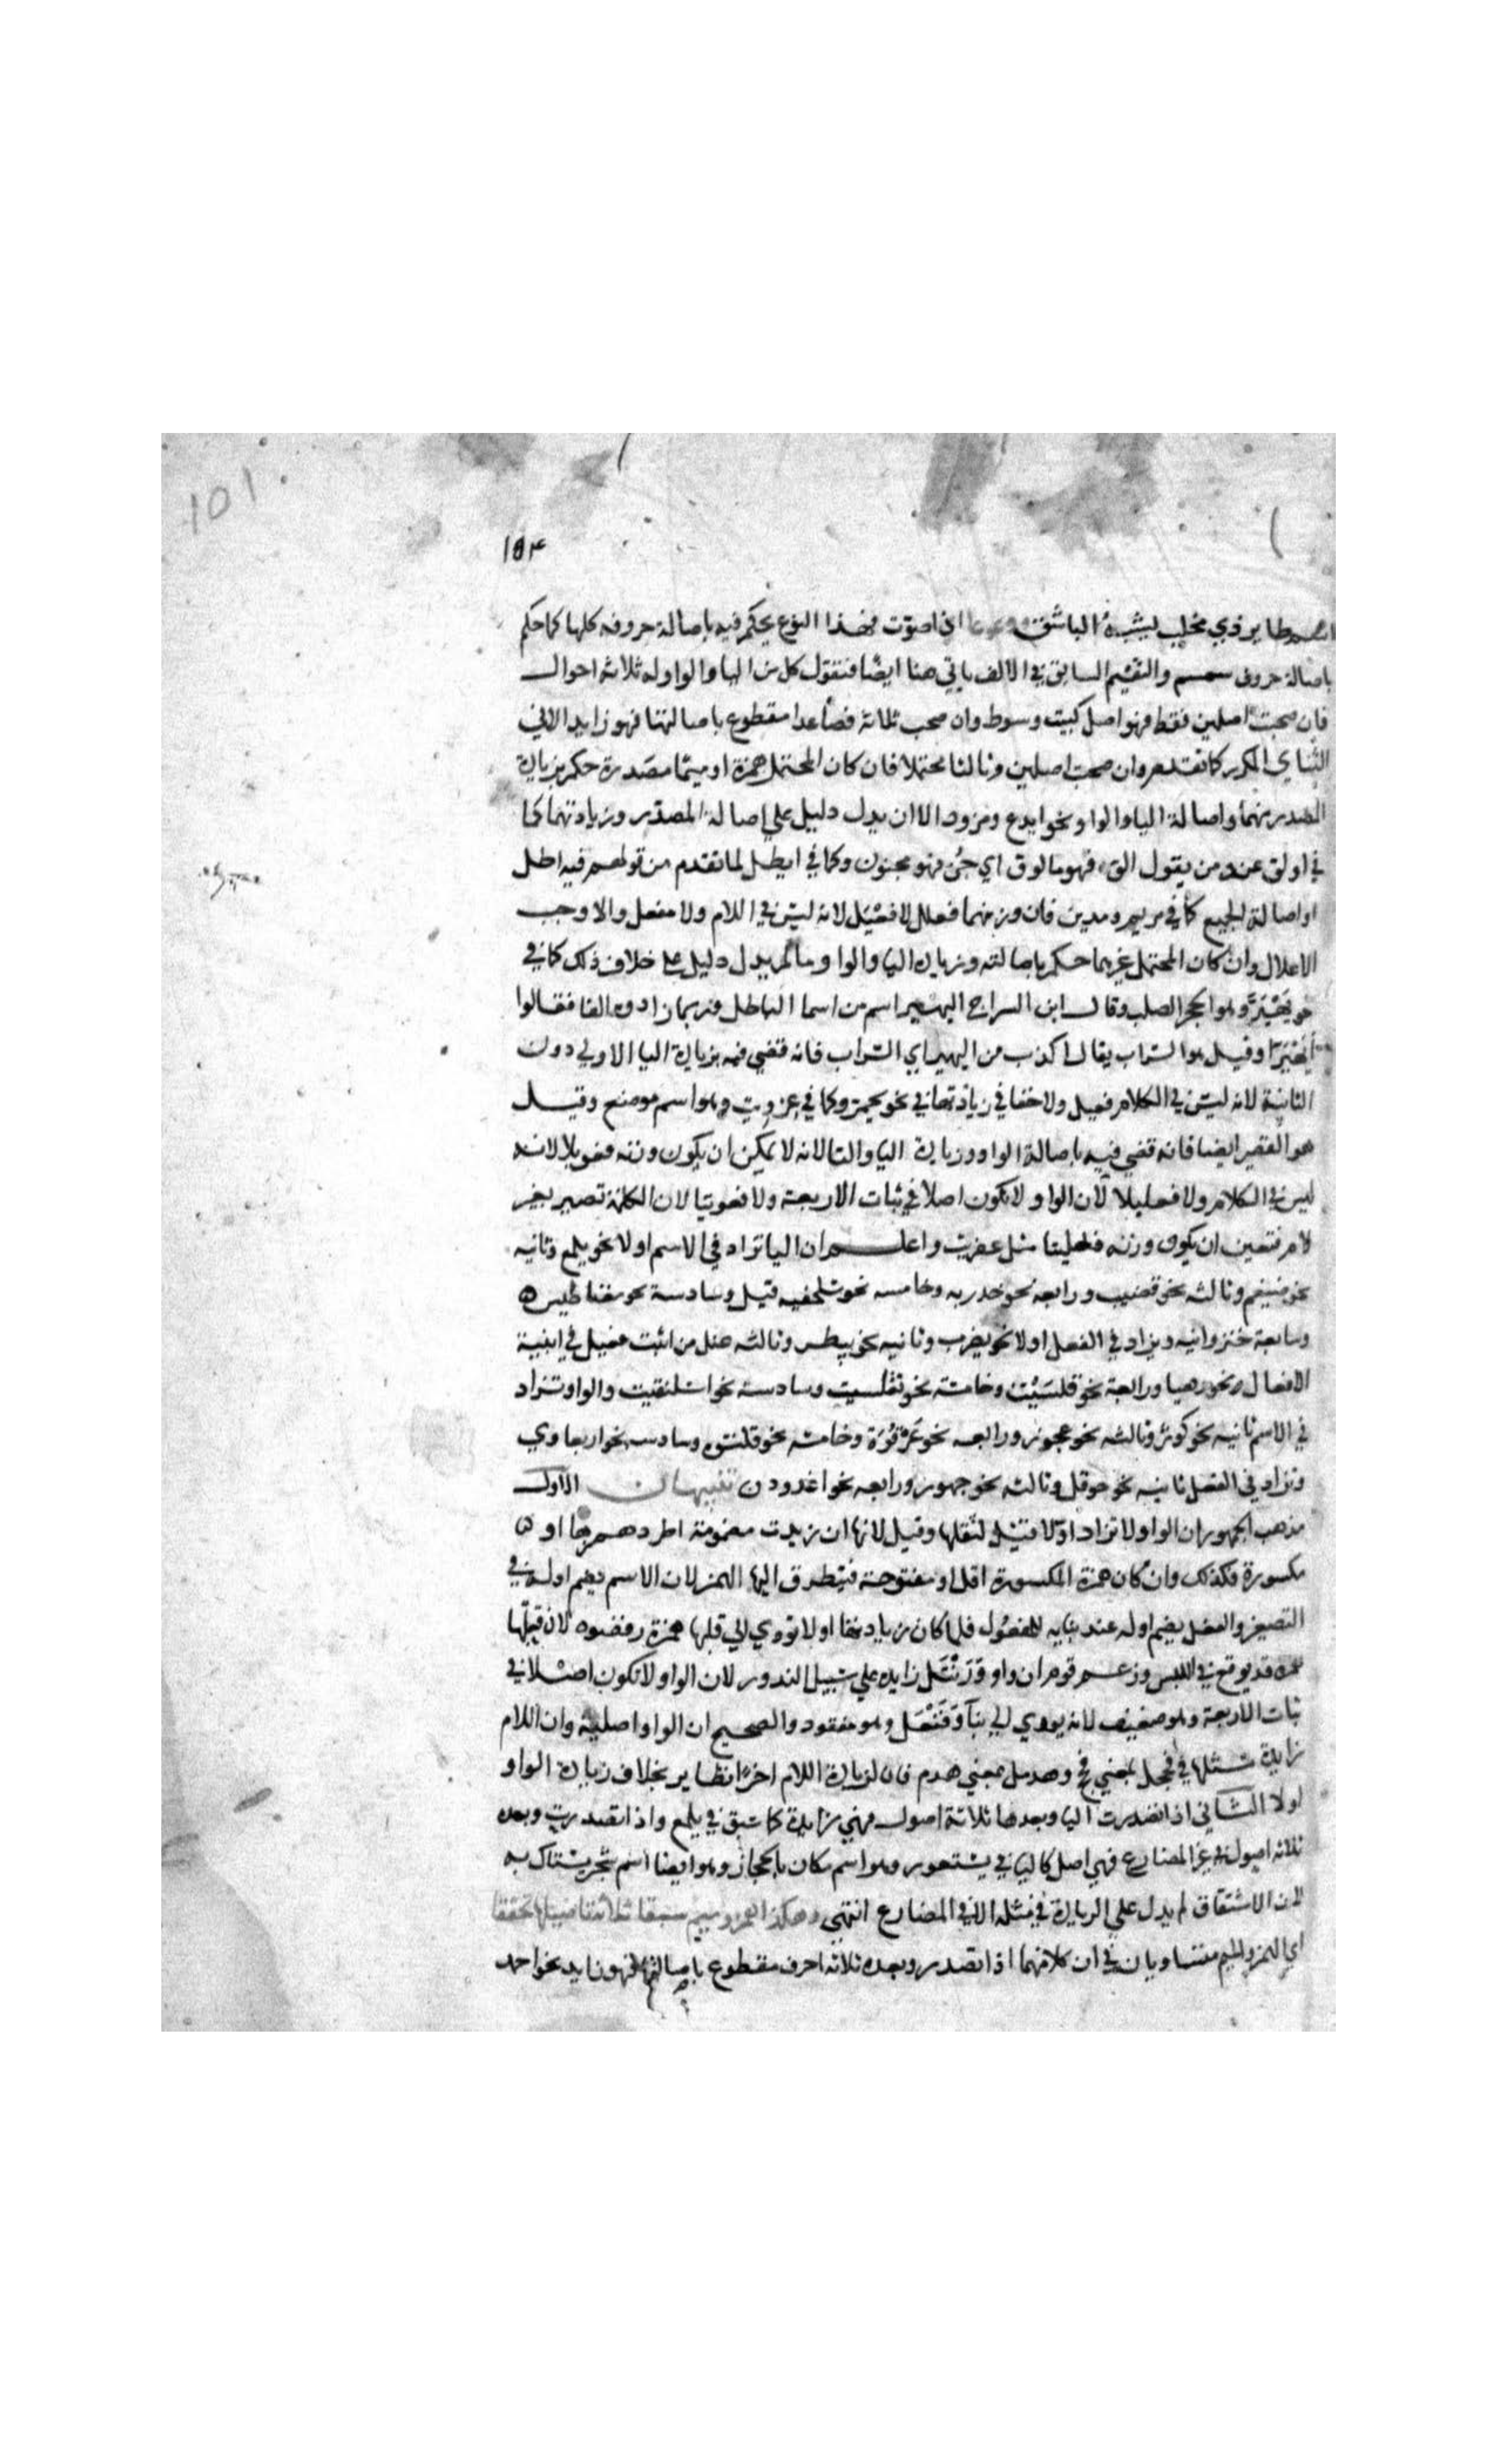 101
154
اسم طاير ذي مخلب يشبه الباشق ووعوعا اذا صوت فهذا النوع يحكم فيه باصالة حروفه كلها كما حكم
باصالة حروف سمسم والتقسيم السابق في الالف ياتي هنا ايضا فنقول كل من اليا والواو له ثلاثة احوال
فان صحب اصلين فقط فهو اصل كبيت وسوط وان صحب ثلاثة فصاعدا مقطوع باصالتها فهو زايد الا في
الثنائي المكرر كما تقدم وان صحب اصلين وثالثا محتملا فان كان المحتمل همزة او ميما مصدرة حكم بزيادة
المصدر منهما واصالة اليا والواو نحو ايدع ومزود الا ان يدل دليل علي اصالة المصدر وزيادتهما كما
في اولق عند من يقول الق فهو مالوق اي جن فهو مجنون وكما في ايطل لما تقدم من قولهم فيه اطل
او اصالة الجميع كما في مريم ومدين فان وزنهما فعلل لا فعيل لانه ليس في الكلام ولا مفعل والا وجب
الاعلال وان كان المحتمل غيرهما حكم باصالته وزيادة اليا والواو ما لم يدل دليل علي خلاف ذلك كما في
نحو يهير وهو الحجر الصلب وقال ابن السراج اليهير اسم من اسما الباطل وربما زادوه الفا فقالوا
يهيرا وقيل هو السراب يقال اكذب من اليهير اي السراب فانه قضي فيه بزيادة اليا الاولي دون
الثانية لانه ليس في الكلام فعيل ولا خفا في زيادتها في نحو يحمر وكما في عزويت وهو اسم موضع وقيل
هو القصير ايضا فانه قضي فيه باصالة الواو وزيادة اليا والتا لانه لا يمكن ان يكون وزنه فعويلا لانه
ليس في الكلام ولا فعليلا لان الواو لا تكون اصلا في بنات الاربعة ولا فعويتا لان الكلمة تصير بغير
لام فتعين ان يكون وزنه فعليتا مثل عفريت واعلم ان اليا تزاد في الاسم اولا نحو يلمع وثانيه
نحو ضيغم وثالثه نحو قضيب ورابعه نحو حذريه وخامسه نحو سلحفيه قيل وسادسة نحو مغناطيس
وسابعة خنزوانيه ويزاد في الفعل اولا نحو يضرب وثانيه نحو بيطر وثالثه عند من اثبت فعيل في ابنية
الافعال نحو رهيا ورابعة نحو قلسيت وخامسة نحو تقلسيت وسادسة نحو اسلنقيت والواو تزاد
في الاسم ثانيه نحو كوثر وثالثه نحو عجوز ورابعه نحو عرقوة وخامسه نحو قلنسوه وسادسه نحو اربعاوي
وتزاد في الفعل ثانيه نحو حوقل وثالثه نحو جهور ورابعه نحو اغدودن تنبيهان الاول
مذهب الجمهور ان الواو لا تزاد اولا قيل لثقلها وقيل لانها ان زيدت مضمومة اطرد همزها او
مكسورة فكذلك وان كان همزة المكسورة اقل او مفتوحة فيتطرق اليها الهمز لان الاسم يضم اوله في
التصغير والفعل يضم اوله عند بنايه للمفعول فلما كان زيادتها اولا تودي الي قلبها همزة رفضوه لان قلبها
همزه قد يوقع في اللبس وزعم قوم ان واو ورنتل زايده علي سبيل الندور لان الواو لا تكون اصلا في
بنات الاربعة وهو ضعيف لانه يودي الي بنا وفنعل وهو مفقود والصحيح ان الواو اصلية وان اللام
زايدة مثلها في فحجل بمعني فحج وهدمل بمعني هدم فان لزيادة اللام اخرا نظاير بخلاف زيادة الواو
اولا الثاني اذا تصدرت اليا وبعدها ثلاثة اصول فهي زايدة كما سبق في يلمع واذا تصدرت وبعدها
ثلاثه اصول في غير المضارع فهي اصل كاليا في يستعور وهو اسم مكان بالحجاز وهو ايضا اسم شجر يستاك به
لان الاشتقاق لم يدل علي الزيادة في مثله الا في المضارع انتهي وهكذا همز وميم سبقا ثلاثة تاصيلها تحققا
اي الهمز والميم متساويان في ان كلا منهما اذا تصدر وبعده ثلاثه احرف مقطوع باصالتها فهو زايد نحو احمد